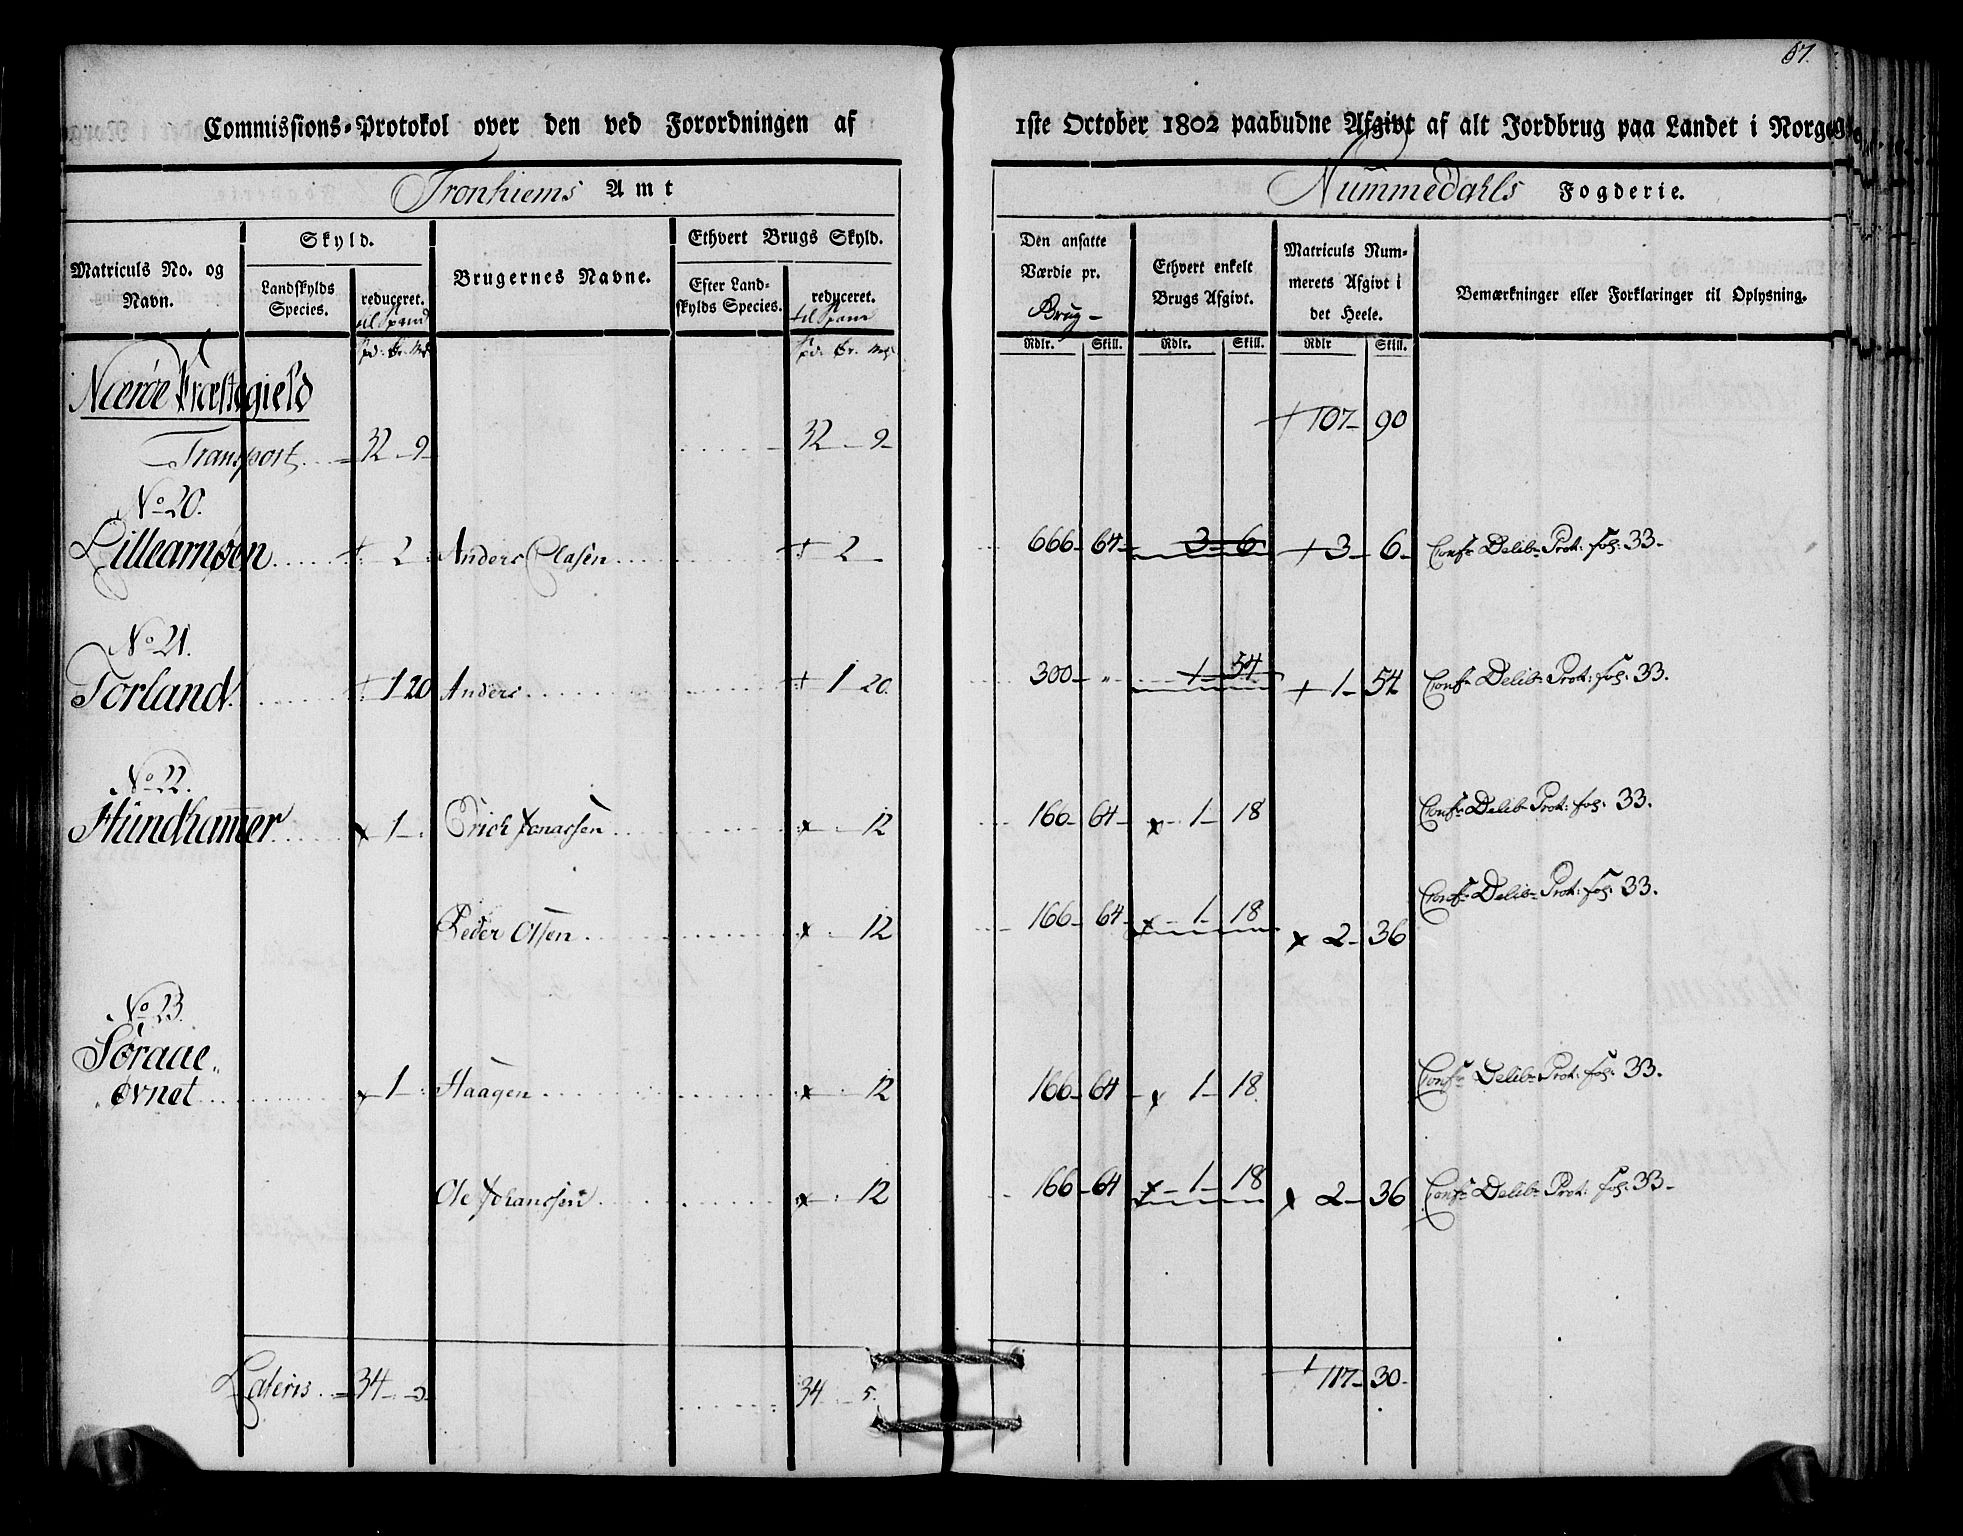 67.
Commissions-Protokol over den ved Forordningen af 1ste October 1802 paabudne Afgivt af alt Jordbrug paa Landet i Norge
Tronhiems Amt
Nummedahls Fogderie.
Matriculs No. og Navn.
Skyld.
Landskylds Species.
reduceret. til Spand
Brugernes Navne.
Ethvert Brugs Skyld.
Efter Landskylds Species.
reduceret. til Spand
Den ansatte Værdie pr. Brug-
Ethvert enkelt Brugs Afgivt.
Matriculs Nummerets Afgivt i det Heele.
Bemærkninger eller Forklaringer til Oplysning.
Rdlr. Skill. Rdlr. Skill. Rdlr Skill.
Nærøe Præstegield
Transport 32 - 9 32 - 9 107 - 90
No 20.
Lillearnøen 2 Anders Clasen 2 666 - 64 3 - 6 3 - 6 Conf: Delib: Prot: fol: 33.
No 21.
Torland 1 20 Anders 1 20. 300 - " 1 - 54 1 - 54 Conf: Delib: Prot: fol: 33.
No 22.
Hundhamer 1 Erich Jonassen 12 166 - 64 1 - 18 Conf: Delib: Prot: fol: 33.
Peder Olsen 12 166 - 64 1 - 18 2 - 36 Conf: Delib: Prot: fol: 33.
No 23.
Søraae
øvnet 1 Haagen 12 166 - 64 1 - 18 Conf: Delib: Prot: fol: 33.
Ole Johanssen 12 166 - 64 1 - 18 2 - 36 Conf: Delib: Prot: fol: 33.
Lateris 34 - 5 34 - 5. 117 - 30